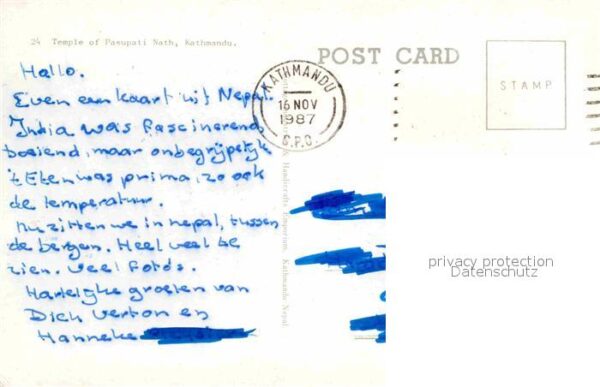 24 Temple of Pasupati Nath, Kathmandu.
POST CARD
STAMP
KATHMANDU
16 NOV
1987
G.P.O.
Hallo.
Even een kaart uit Nepal.
India was fascinerend,
boeiend, maar onbegrijpelijk
't Eten was prima, zo ook
de temperatuur.
Nu zitten we in nepal, tussen
de bergen. Heel veel te
zien. Veel foto's.
Hartelijke groeten van
Dick Verton en
Hanneke
Handicrafts Emporium. Kathmandu Nepal.
privacy protection
Datenschutz